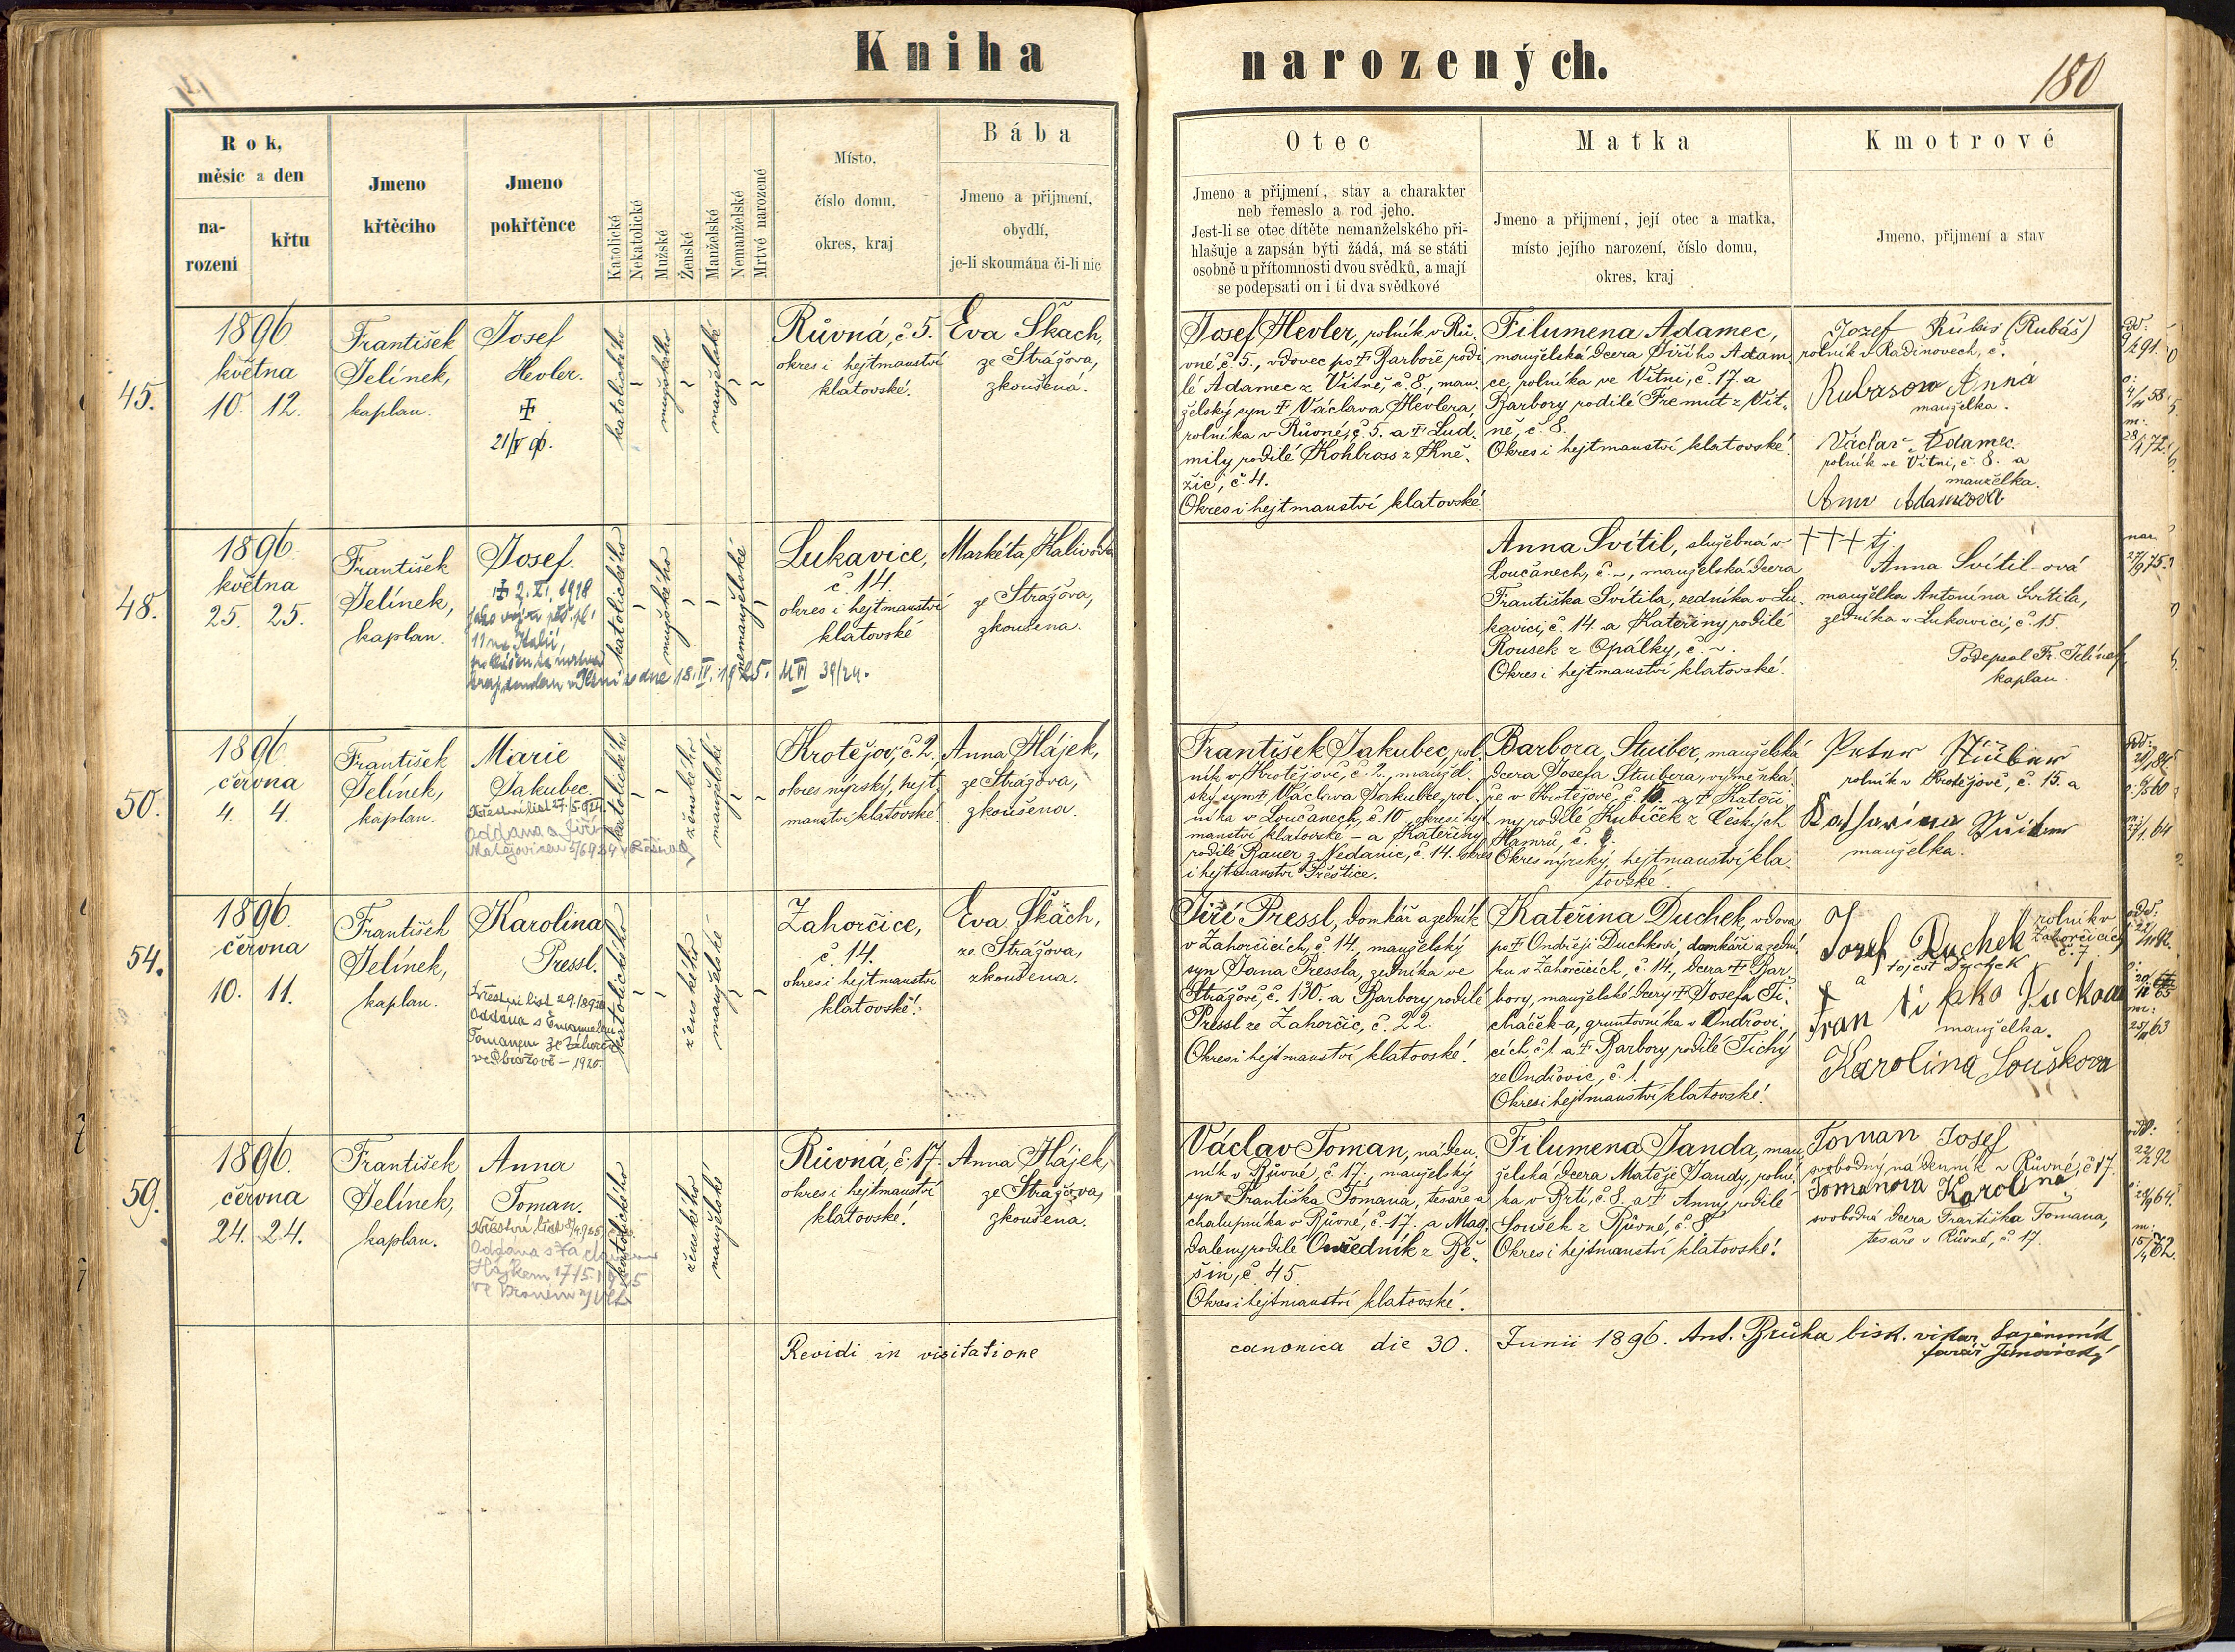 Kniha
narozených.
180
Rok,
měsíc a den
na-
rození
křtu
Jmeno
křtěcího
Jmeno
pokřtěnce
Katolické
Nekatolické
Mužské
Ženské
Manželské
Nemanželské
Mrtvé narozené
Místo,
číslo domu,
okres, kraj
Bába
Jmeno a přijmení,
obydlí,
je-li skoumána či-li nic
Otec
Jmeno a přijmení, stav a charakter
neb řemeslo a rod jeho.
Jest-li se otec dítěte nemanželského při-
hlašuje a zapsán býti žádá, má se státi
osobně u přítomnosti dvou svědků, a mají
se podepsati on i ti dva svědkové
Matka
Jmeno a přijmení, její otec a matka,
místo jejího narození, číslo domu,
okres, kraj
Kmotrové
Jmeno, přijmení a stav
45.
1896
května
10. 12.
František
Jelínek,
kaplan.
Josef
Hevler.
katolického
mužského
manželské
Růvná, č. 5.
okres i hejtmanství
klatovské.
Eva Škach,
ze Strážova,
zkoušená.
Josef Hevler, rolník v Rů-
vné č. 5., vdovec po † Barboře rodi-
lé Adamec z Vítně, č. 8., man-
želský syn † Václava Hevlera,
rolníka v Růvné, č. 5. a † Lud-
mily rodilé Kohlross z Kně-
žic, č. 4.
Okres i hejtmanství klatovské
Filumena Adamec,
manželská dcera Jiřího Adam-
ce, rolníka ve Vítni, č. 17. a
Barbory rodilé Fremut z Vít-
ně, č. 8.
Okres i hejtmanství klatovské.
Jozef (Rubáš)
rolník v Radinovech, č.
Anna
manželka.
Václav Adamec
rolník ve Vítni, č. 8. a
manželka.
48.
1896.
května
25. 25.
František
Jelínek,
kaplan.
Josef.
† 2. XI. 1918
18. II. 1925.
39/24.
katolického
mužského
nemanželské
Lukavice,
č. 14.
okres i hejtmanství
klatovské
Markéta
ze Strážova,
zkoušena.
Anna Svítil, služebná v
Loučanech, č. ~, manželská dcera
Františka Svítila, zedníka v Lu-
kavici, č. 14. a Kateřiny rodilé
Rousek z Opálky, č. ~.
Okres i hejtmanství klatovské.
+++ tj
Anna Svítil-ová
manželka Antonína Svítila,
zedníka v Lukavici, č. 15.
Podepsal Fr. Jelínek
kaplan
50.
1896.
června
4. 4.
František
Jelínek,
kaplan.
Marie
Jakubec.
katolického
ženského
manželské
Krotějov, č. 2.
okres nýrský, hejt-
manství klatovské.
Anna Hájek,
ze Strážova,
zkoušena.
František Jakubec, rol-
ník v Krotějově, č. 2., manžel-
ský syn † Václava Jakubce, rol-
níka v Loučanech, č. 10. okres i hejt-
manství klatovské – a Kateřiny
rodilé Bauer z Nedanic, č. 14. okres
i hejtmanství Přeštice.
Barbora Stuiber, manželská
dcera Josefa Stuibera, výměnká-
ře v Krotějově, a † Kateři-
ny rodilé Kubíček z Českých
Hamrů, č.
Okres nýrský, hejtmanství kla-
tovské.
Peter
rolník v Krotějově, č. 15. a
manželka.
54.
1896.
června
10. 11.
František
Jelínek,
kaplan.
Karolina
Pressl.
Křestní list
Oddána s Emanuelem
Tomanem
– 1920.
katolického
ženského
manželské
Zahorčice,
č. 14.
okres i hejtmanství
klatovské.
Eva Škach,
ze Strážova,
zkoušena.
Jiří Pressl, domkář a zedník
v Zahorčicích, č. 14., manželský
syn Jana Pressla, zedníka ve
Strážově, č. 130. a Barbory rodilé
Pressl ze Zahorčic, č. 22.
Okres i hejtmanství klatovské.
Kateřina Duchek, vdova
po † Ondřeji Duchkovi, domkáři a zední-
ku v Zahorčicích, č. 14., dcera † Bar-
bory, manželské dcery † Josefa Ti-
cháček-a, gruntovníka v Ondřovi-
cích, č. 1. a † Barbory rodilé Tichý
ze Ondřovic, č. 1.
Okres i hejtmanství klatovské.
Jozef Duchek rolník v
Zahorčicích
č. 7
a
manželka.
Karolina Louškova
59.
1896.
června
24. 24.
František
Jelínek,
kaplan.
Anna
Toman.
katolického
ženského
manželské
Růvná, č. 17.
okres i hejtmanství
klatovské.
Anna Hájek,
ze Strážova,
zkoušena.
Václav Toman, náden-
ník v Růvné, č. 17., manželský
syn Františka Tomana, tesaře a
chalupníka v Růvné, č. 17. a Mag-
daleny rodilé z Bě-
šin, č. 45
Okres i hejtmanství klatovské.
Filumena Janda, man-
želská dcera Matěje Jandy, rolní-
ka v Brtí, č. 8. a † Anny rodilé
Loušek z Růvné, č. 8.
Okres i hejtmanství klatovské.
Toman Josef
svobodný nádenník v Růvné, č. 17.
Tomanova Karolina
svobodná dcera Františka Tomana,
tesaře v Růvné, č. 17.
Revidi in visitatione canonica die 30. Junii 1896. Ant. Brůha bisk. vikar,
farář